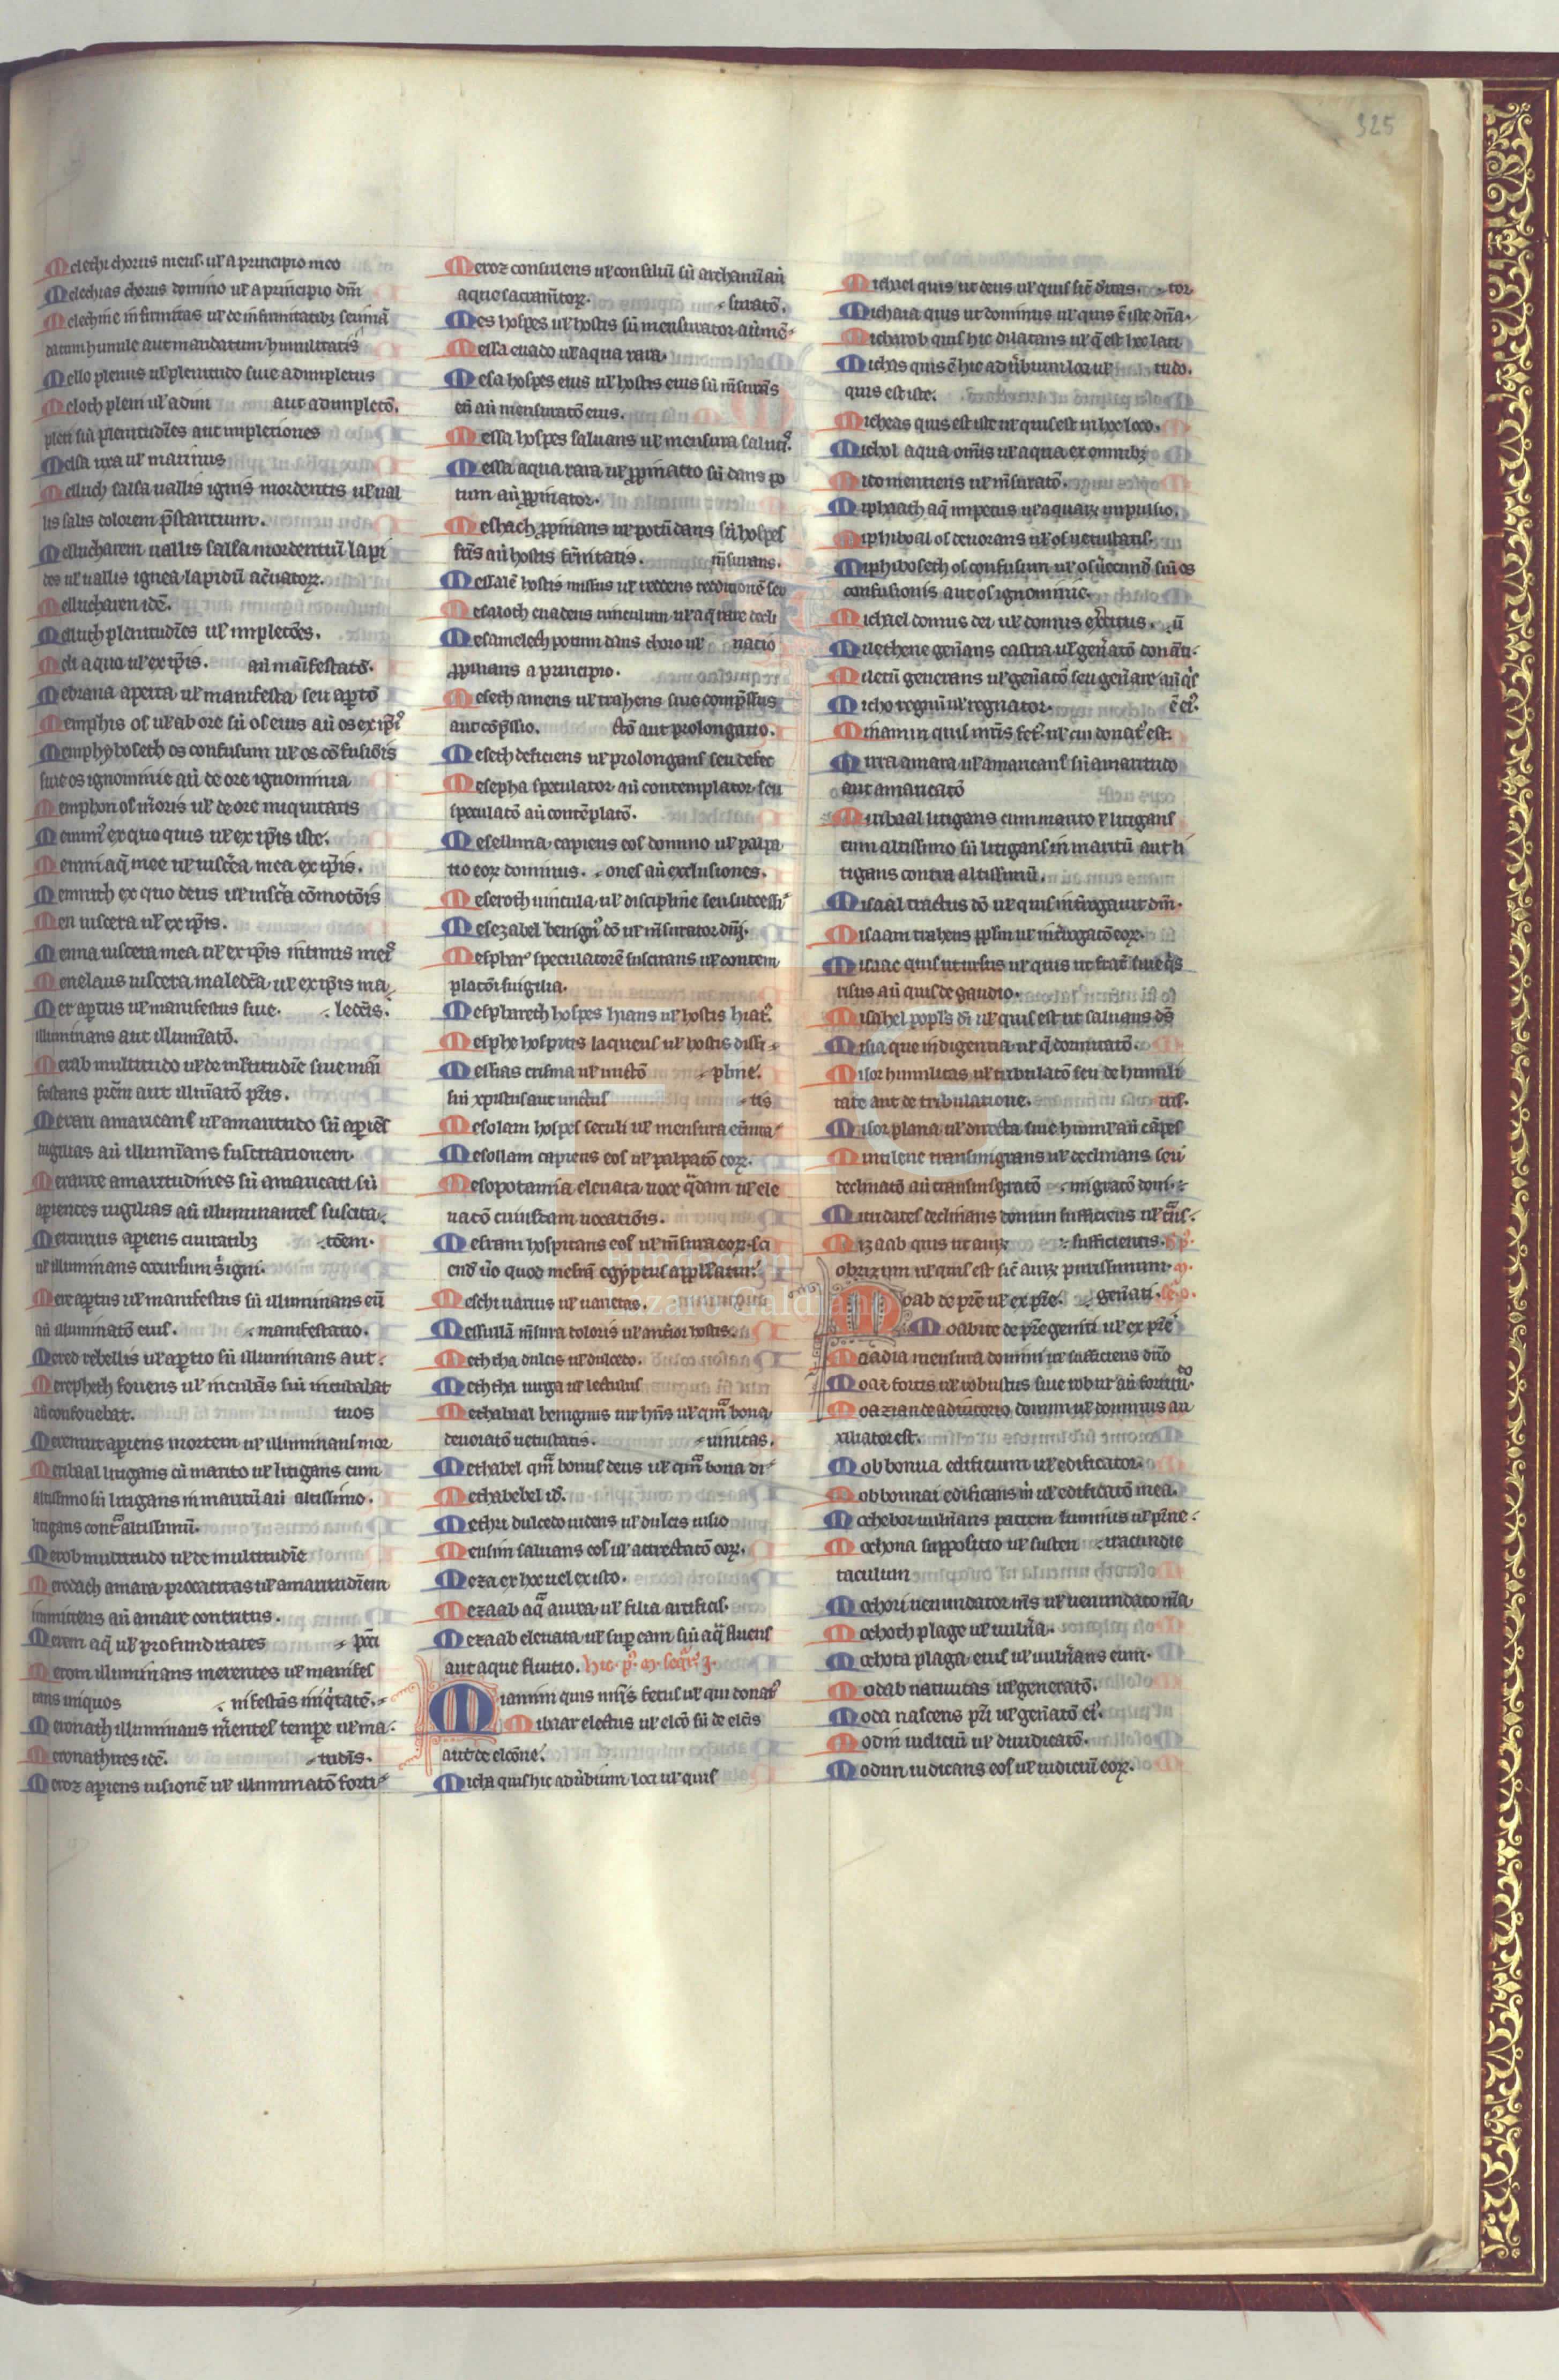 325
Melechi chorus meus. ul' a principio meo
Melechias chorus domino ul' a principio dñi
Melechine infirmitas ul' de infirmitatibꝫ seu mã
datum humile aut mandatum humilitatis
Mello plenus ul' plenitudo siue adimpletus
Meloth pleni ul' adim aut adimpletõ.
pleti siũ plenitudĩes aut impletiones
Melsa uxa ul' matinus
Melluch salsa uallis ignis mordentis ul' ual
lis salis dolorem p̃stantium.
Mellucharem uallis salsa mordentiũ lapi
des ul' uallis ignea lapidũ acuatoꝝ.
Mellucharen idẽ.
Melluch plenitudĩes ul' impletões.
Mel a quo ul' ex ip̃is. aũ mãifestatõ.
Mebrana aperta ul' manifesta seu aꝑtõ
Memphis os ul' ab ore sũ os eius aũ os ex ip̃is
Memphyboseth os confusum ul' os cõfusiõis
siue os ignominie aũ de ore ignominia
Memphon os m̃oris ul' de ore iniquitatis
Memmi ex quo quis ul' ex ip̃is iste.
Memmi aq̃ mee ul' uisc̃a mea ex ip̃is.
Memruth ex quo deus ul' uisc̃a cõmotõis
Men uiscera ul' ex ip̃is.
Menna uiscera mea ul' ex ip̃is intimis meis
Menelaus uiscera maledc̃a ul' ex ip̃is ma
Mer aꝑtus ul' manifestus siue. ledc̃is.
illuminans aut illumĩatõ.
Merab multitudo ul' de ml'titudĩe siue mãi
festans pr̃em aut illuĩatõ pr̃is.
Merari amaricans ul' amaritudo sũ aꝑiẽs
uigilias aũ illumĩans suscitationem.
Merarite amaritudines sũ amaricati sũ
aperientes uigilias aũ illuminantes suscita
Mercurius aꝑiens ciuitatibꝫ tõem.
ul' illuminans occursum signi.
Mere aꝑtus ul' manifestus sũ illuminans eũ
aũ illuminatõ eius. manifestatio.
Mered rebellis ul' aꝑtio sũ illuminans aut
Merepheth fouens ul' incubãs siũ incubabat
aũ confouebat. tuos
Meremut aꝑiens mortem ul' illuminans mor
Meribaal litigans cũ marito ul' litigans cum
altissimo sũ litigans in maritũ aũ altissimo.
litigans contᵃ altissimũ.
Merob multitudo ul' de multitudĩe
Merodach amara procacitas ul' amaritudĩem
inmittens aũ amare contritus.
Merom aq̃ ul' profunditates
Merom illuminans merentes ul' manifes
tans iniquos nifestãs iniq̃tatẽ.
Meronath illuminans m̃entes tempe ul' ma
Meronathites idẽ. tudĩs.
Meroz aꝑiens uisionẽ ul' illuminatõ forti
Meroz consulens ul' consiliũ sũ archanũ aũ
aque sacram̃toꝝ. suratõ.
Mes hospes ul' hostis sũ mensurator aũ mẽ
Messa euado ul' aqua rara.
Mesa hospes eius ul' hostis eius sũ m̃surãs
eũ aũ mensuratõ eius.
Messa hospes saluans ul' mensura salutis
Messa aqua rara ul' ꝓpinatio sũ dans po
tum aũ ꝓpinator.
Mesbach ꝓpinans ul' potũ dans sũ hospes
fr̃is aũ hostis fr̃nitatis. m̃surans.
Messalẽ hostis missus ul' reddens redditionẽ seu
Mesaroth euadens uinculum ul' aq̃ rare decli
Mesamelech potum dans choro ul' natio
ꝓpinans a principio.
Meseth amens ul' trahens siue comp̃ssus
aut cõp̃ssio. ctõ aut prolongatio.
Mesech deficiens ul' prolongans seu defec
Mesepha speculator aũ contemplator seu
speculatõ aũ contẽplatõ.
Meselluna capiens eos domino ul' palpa
tio eoꝝ dominus. ones aũ exclusiones.
Meseroth uincula ul' discipline seu successi
Mesezabel benign᷒ dõ ul' m̃surator dñi.
Mesphar speculatorẽ suscitans ul' contem
platõi suigilia.
Mesphareth hospes hians ul' hostis hiat᷒.
Mesphe hospitis laqueus ul' hostis disci
Messias crisma ul' unctõ pline.
siũ xp̃istus aut unctus tis
Mesolam hospes seculi ul' mensura etĩnita
Mesollam capiens eos ul' palpatõ eoꝝ.
Mesopotamia eleuata uoce q̃dam ul' ele
uatõ cuiusdam uocatiõis.
Mesram hospitans eos ul' m̃sura eoꝝ sci
end̃ ũo quod mesrã egyptus appellatur.
Meschi uarius ul' uarietas.
Messullã m̃sura doloris ul' antiõr hostis.
Meth tha dulcis ul' dulcedo.
Meth tha uirga ul' lectulus
Methabaal benignus uir hñs ul' qm̃ bona
deuoratõ uetustatis. uinitas.
Methabel qm̃ bonus deus ul' qm̃ bona di
Methabebel id̃.
Methri dulcedo uidens ul' dulcis uisio
Meusim saluans eos ul' attrectatõ eoꝝ.
Meza ex hoc uel ex isto.
Mezaab aq̃ aurea ul' filia artificis.
Mezaab eleuata ul' sup eam siũ aq̃ fluens
aut aque fluuio.
Miamin quis mr̃is fetus ul' qui donat᷒
Mibaar electus ul' elc̃õ sũ de elc̃is
aut de elc̃õne.
Micha quis hic ad ũbium loci ul' quis
Michael quis ut deus ul' quis sic̃ deus. tor
Michaia quis ut dominus ul' quis ẽ iste dña.
Micharob quis hic dilatans ul' q̃ est hec lati
Michas quis ẽ hic adtribuim loci ul' tudo.
quis est iste.
Micheas quis est iste ul' quis est in hoc loco.
Michol aqua om̃is ul' aqua ex omnibꝫ
Mido mentiens ul' m̃suratõ.
Miphaath aq̃ impetus ul' aquaꝝ impulsio.
Miphiboal os deuorans ul' os uetustatis.
Miphiboseth os confusum ul' os ũecund̃ siũ os
confusionis aut os ignominie.
Michael domus dei ul' domus exc̃itus. ũ
Milethene geñans castra ul' geñatõ donãti.
Miletũ generans ul' geñatõ seu geñare aũ q̃s
Micho regnũ ul' regnator. ẽ ei᷒.
Minamin quis mr̃is fet᷒ ul' cui donat᷒ est.
Mirra amara ul' amaricans siũ amaritudo
aut amaricatõ
Miribaal litigans cum marito ul' litigans
cum altissimo sũ litigans in maritũ aut li
tigans contra altissimũ.
Misaal tractus dõ ul' quis int̃rogauit dñi.
Misaam trahens pplm ul' int̃rogatõ eoꝝ.
Misaac quis ut ursus ul' quis ut frac̃ siue q̃s
risus aũ quis de gaudio.
Misahel popl's di ul' quis est ut saluans dẽ
Misia que indigentia ul' q̃ dominatõ.
Misor humilitas ul' tribulatõ seu de humili
tate aut de tribulatione. tris.
Misor plana ul' directa siue humil' aũ cãpes
Mitilene transmigrans ul' declinans seu
declinatõ aũ transmigratõ migratõ dom
Mitridates declinans domum sufficiens ul' trãs
Mizaab quis ut auꝝ sufficientis.
obrizum ul' quis est sic̃ auꝝ purissimum.
Moab de pr̃e ul' ex pr̃e. geñati.
Moabite de pr̃e geniti ul' ex pr̃e
Moadia mensura domini ul' sufficiens dño
Moaz fortis ul' robustus siue robur aũ fortitu do
Moazian de adiutorio domini ul' dominus au
xiliator est.
Mobbonua edificium ul' edificator.
Mobbonnai edificans in ul' edificatõ mea.
Mochebor uuln̄ans patrem familius ul' pr̃ne
Mochona suppositio ul' susten iracundie
taculum
Mochori uenundator m̃s ul' uenundato m̃a
Mochoch plage ul' uuln̄a.
Mochota plaga eius ul' uuln̄ans eum.
Modab natiuitas ul' generatõ.
Moda nascens pr̃i ul' geñatõ ei᷒.
Modin iudiciũ ul' diiudicatõ.
Modun iudicans eos ul' iudiciũ eoꝝ.
Fundación
Lázaro Galdiano